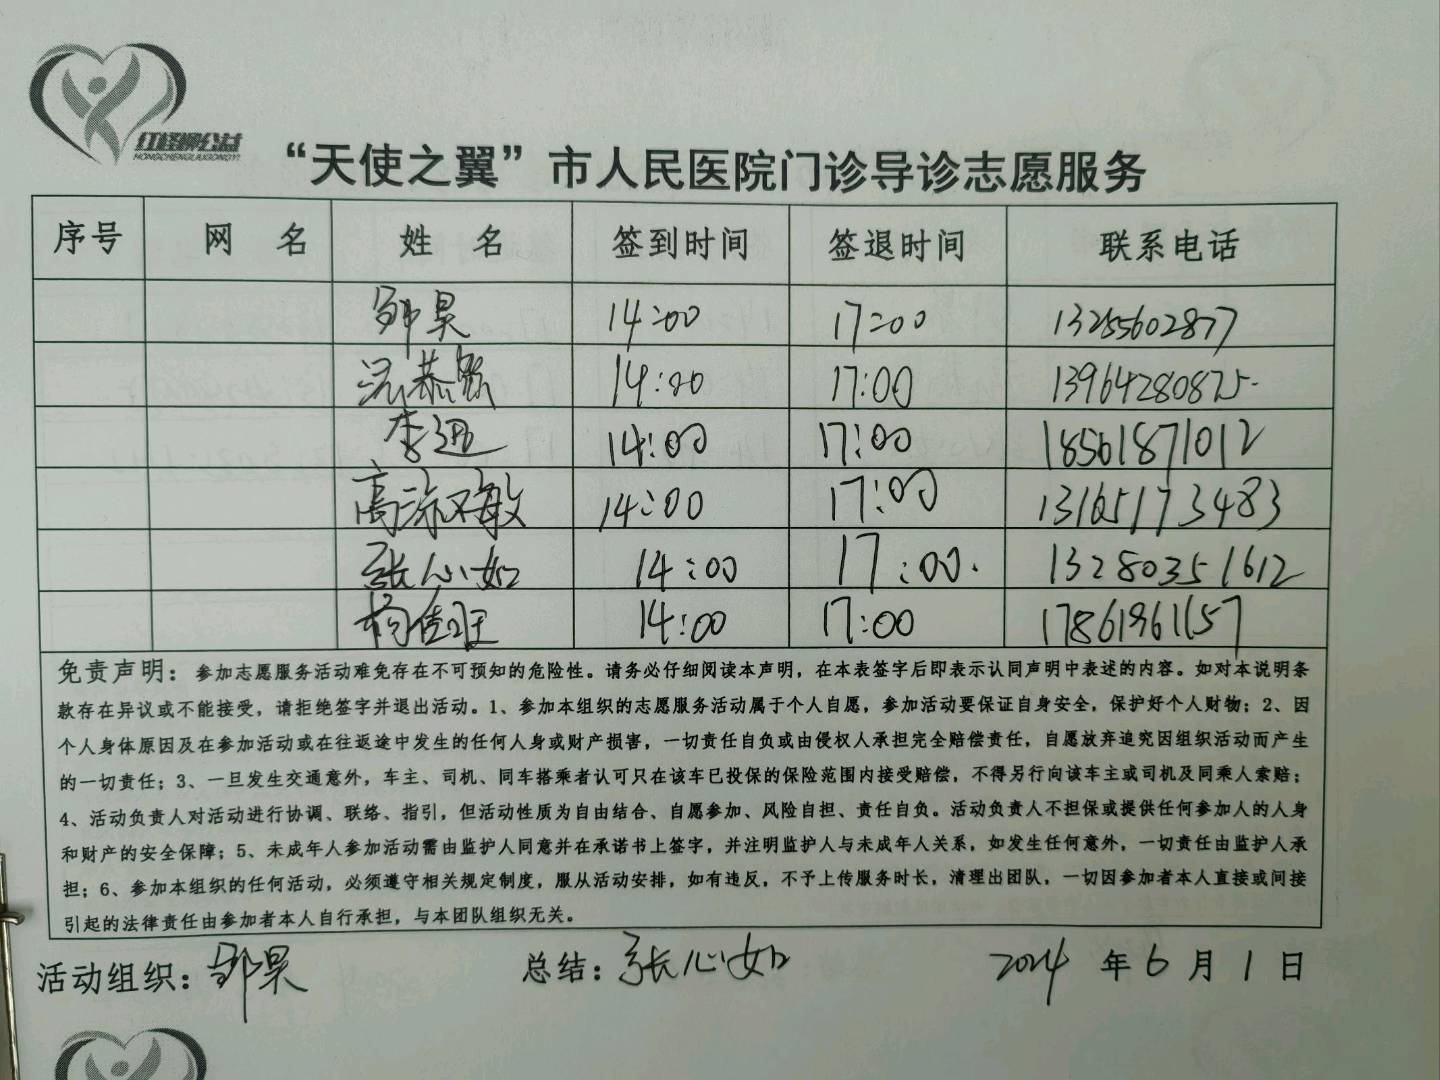 红柽柳公益
HONGCHENGLIUGONGYI
“天使之翼”市人民医院门诊导诊志愿服务
序号 网 名 姓 名 签到时间 签退时间 联系电话
邹昊 14:00 17:00 13255602877
14:00 17:00 13964280825
李迅 14:00 17:00 18561871012
高 敏 14:00 17:00 13165173483
张心如 14:00 17:00 13280351612
杨 14:00 17:00 17861961157
免责声明：参加志愿服务活动难免存在不可预知的危险性。请务必仔细阅读本声明，在本表签字后即表示认同声明中表述的内容。如对本说明条
款存在异议或不能接受，请拒绝签字并退出活动。1、参加本组织的志愿服务活动属于个人自愿，参加活动要保证自身安全，保护好个人财物；2、因
个人身体原因及在参加活动或在往返途中发生的任何人身或财产损害，一切责任自负或由侵权人承担完全赔偿责任，自愿放弃追究因组织活动而产生
的一切责任；3、一旦发生交通意外，车主、司机、同车搭乘者认可只在该车已投保的保险范围内接受赔偿，不得另行向该车主或司机及同乘人索赔；
4、活动负责人对活动进行协调、联络、指引，但活动性质为自由结合、自愿参加、风险自担、责任自负。活动负责人不担保或提供任何参加人的人身
和财产的安全保障；5、未成年人参加活动需由监护人同意并在承诺书上签字，并注明监护人与未成年人关系，如发生任何意外，一切责任由监护人承
担；6、参加本组织的任何活动，必须遵守相关规定制度，服从活动安排，如有违反，不予上传服务时长，清理出团队，一切因参加者本人直接或间接
引起的法律责任由参加者本人自行承担，与本团队组织无关。
活动组织：邹昊 总结：张心如 2024 年 6 月 1 日